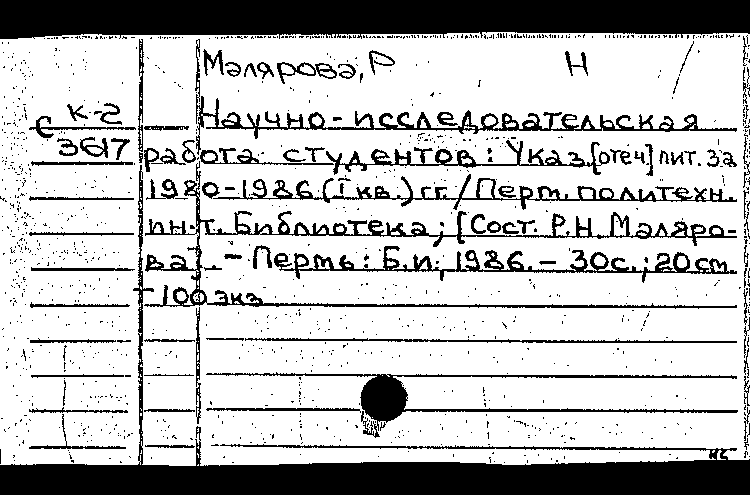 Малярова, Р Н
С К-2
3617
Научно-исследовательская
работа студентов: Указ. [отеч] лит. за
1980-1986 (I кв.) гг. / Перм. политехн.
ин-т. Библиотека; [Сост. Р.Н. Маляро-
ва]. - Пермь: Б.и., 1986. - 30с.; 20см
- 100 экз